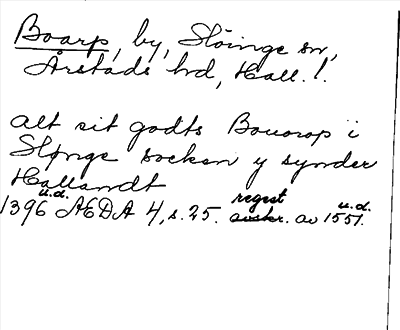 Boarp, by, Slöinge sn,
Årstads hd, Hall. l.
alt sit godts Bouorop i
Slønge socken y synder
Hallandt
1396 u.d. ÆDA 4, s. 25. regest av 1551. u.d.